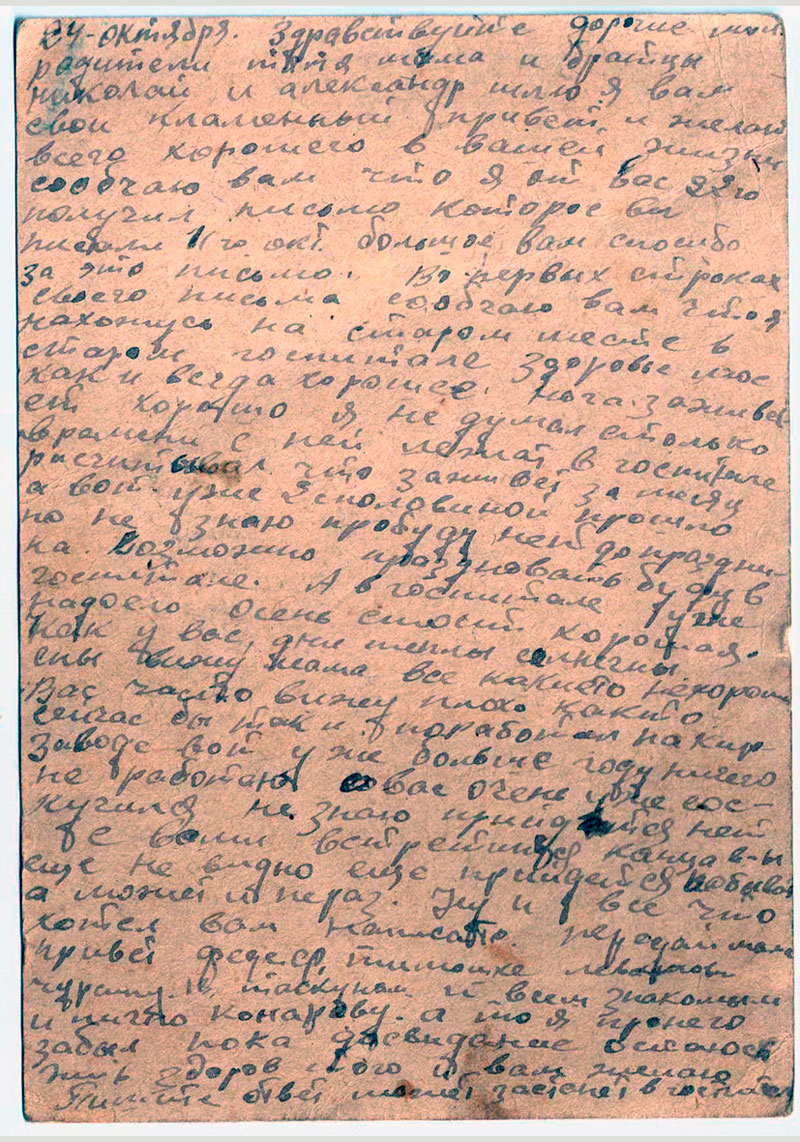 24-октября. Здравствуйте дорогие мои
радители тятя мама и братцы
николай и александр шлю я вам
свой кламенный привет и желаю
всего хорошего в вашей жизни
сообчаю вам что я от вас 22го
получил письмо которое вы
писали 11го окт. большое вам спосибо
за это письмо. Во первых строках
своего письма сообчаю вам что я
нахожусь на старом месте в
старом госпитале здоровье мое
как и всегда хорошее. нога заживa
ет хорошо я не думал столько
времени с ней лежат в госпитале
расчитывал что заживет за месяц
а вот уже 2 сполoвиной прошло
но не знаю пробуду нет до праздни-
ка. возможно праздновать буду в
госпитале. А в госпитале уже
надоело осень стоит хорошая.
как у вас, дни теплы солнечны.
сны вижу мама все какието нехороши
Вас часто вижу плохо както
сейчас бы так и поработал на кир
заводе вот уже больше году ничего
не работаю овас очень уже сос-
кучился не знаю прийдется нет
с вами встретится канца в-ы
еще не видно еще прийдется побыват
а может и нераз. Ну и все что
хотел вам написать. передай мама
привет тимошке
и таскунам и всем знакомым
и а то я пронего
забыл пока досвидание остаюсь
жив здоров того и вам желаю
Пишите ответ может застанет в госпитале